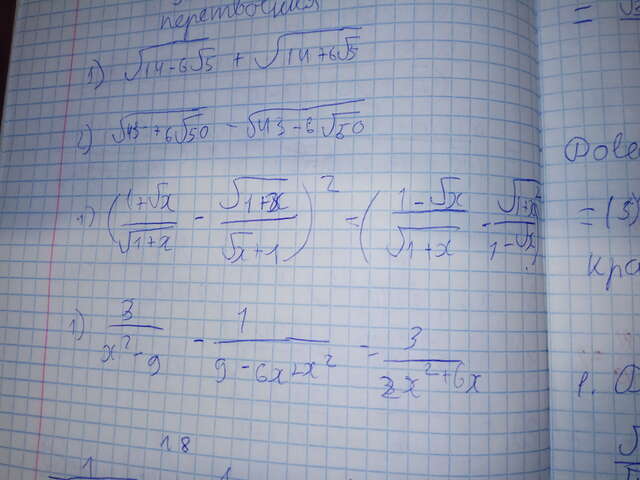 перетворення
1) √(14-6√5) + √(14+6√5)
2) √(43+6√50) - √(43-6√50)
1) ((1+√x)/√(1+x) - √(1+x)/(√x+1))² = ((1-√x)/√(1+x) - √(1+x)/(1-√x))²
1) 3/(x²-9) - 1/(9-6x+x²) = 3/(2x²+6x)
18
1 1
= √
Дове
= (3)
Кра
1.